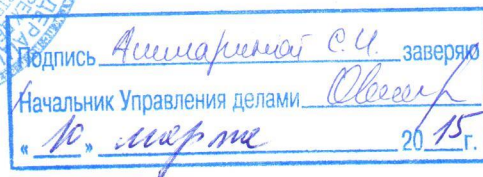 Подпись Ашмариной С.И. заверяю
Начальник Управления делами
« 10 » марта 2015 г.